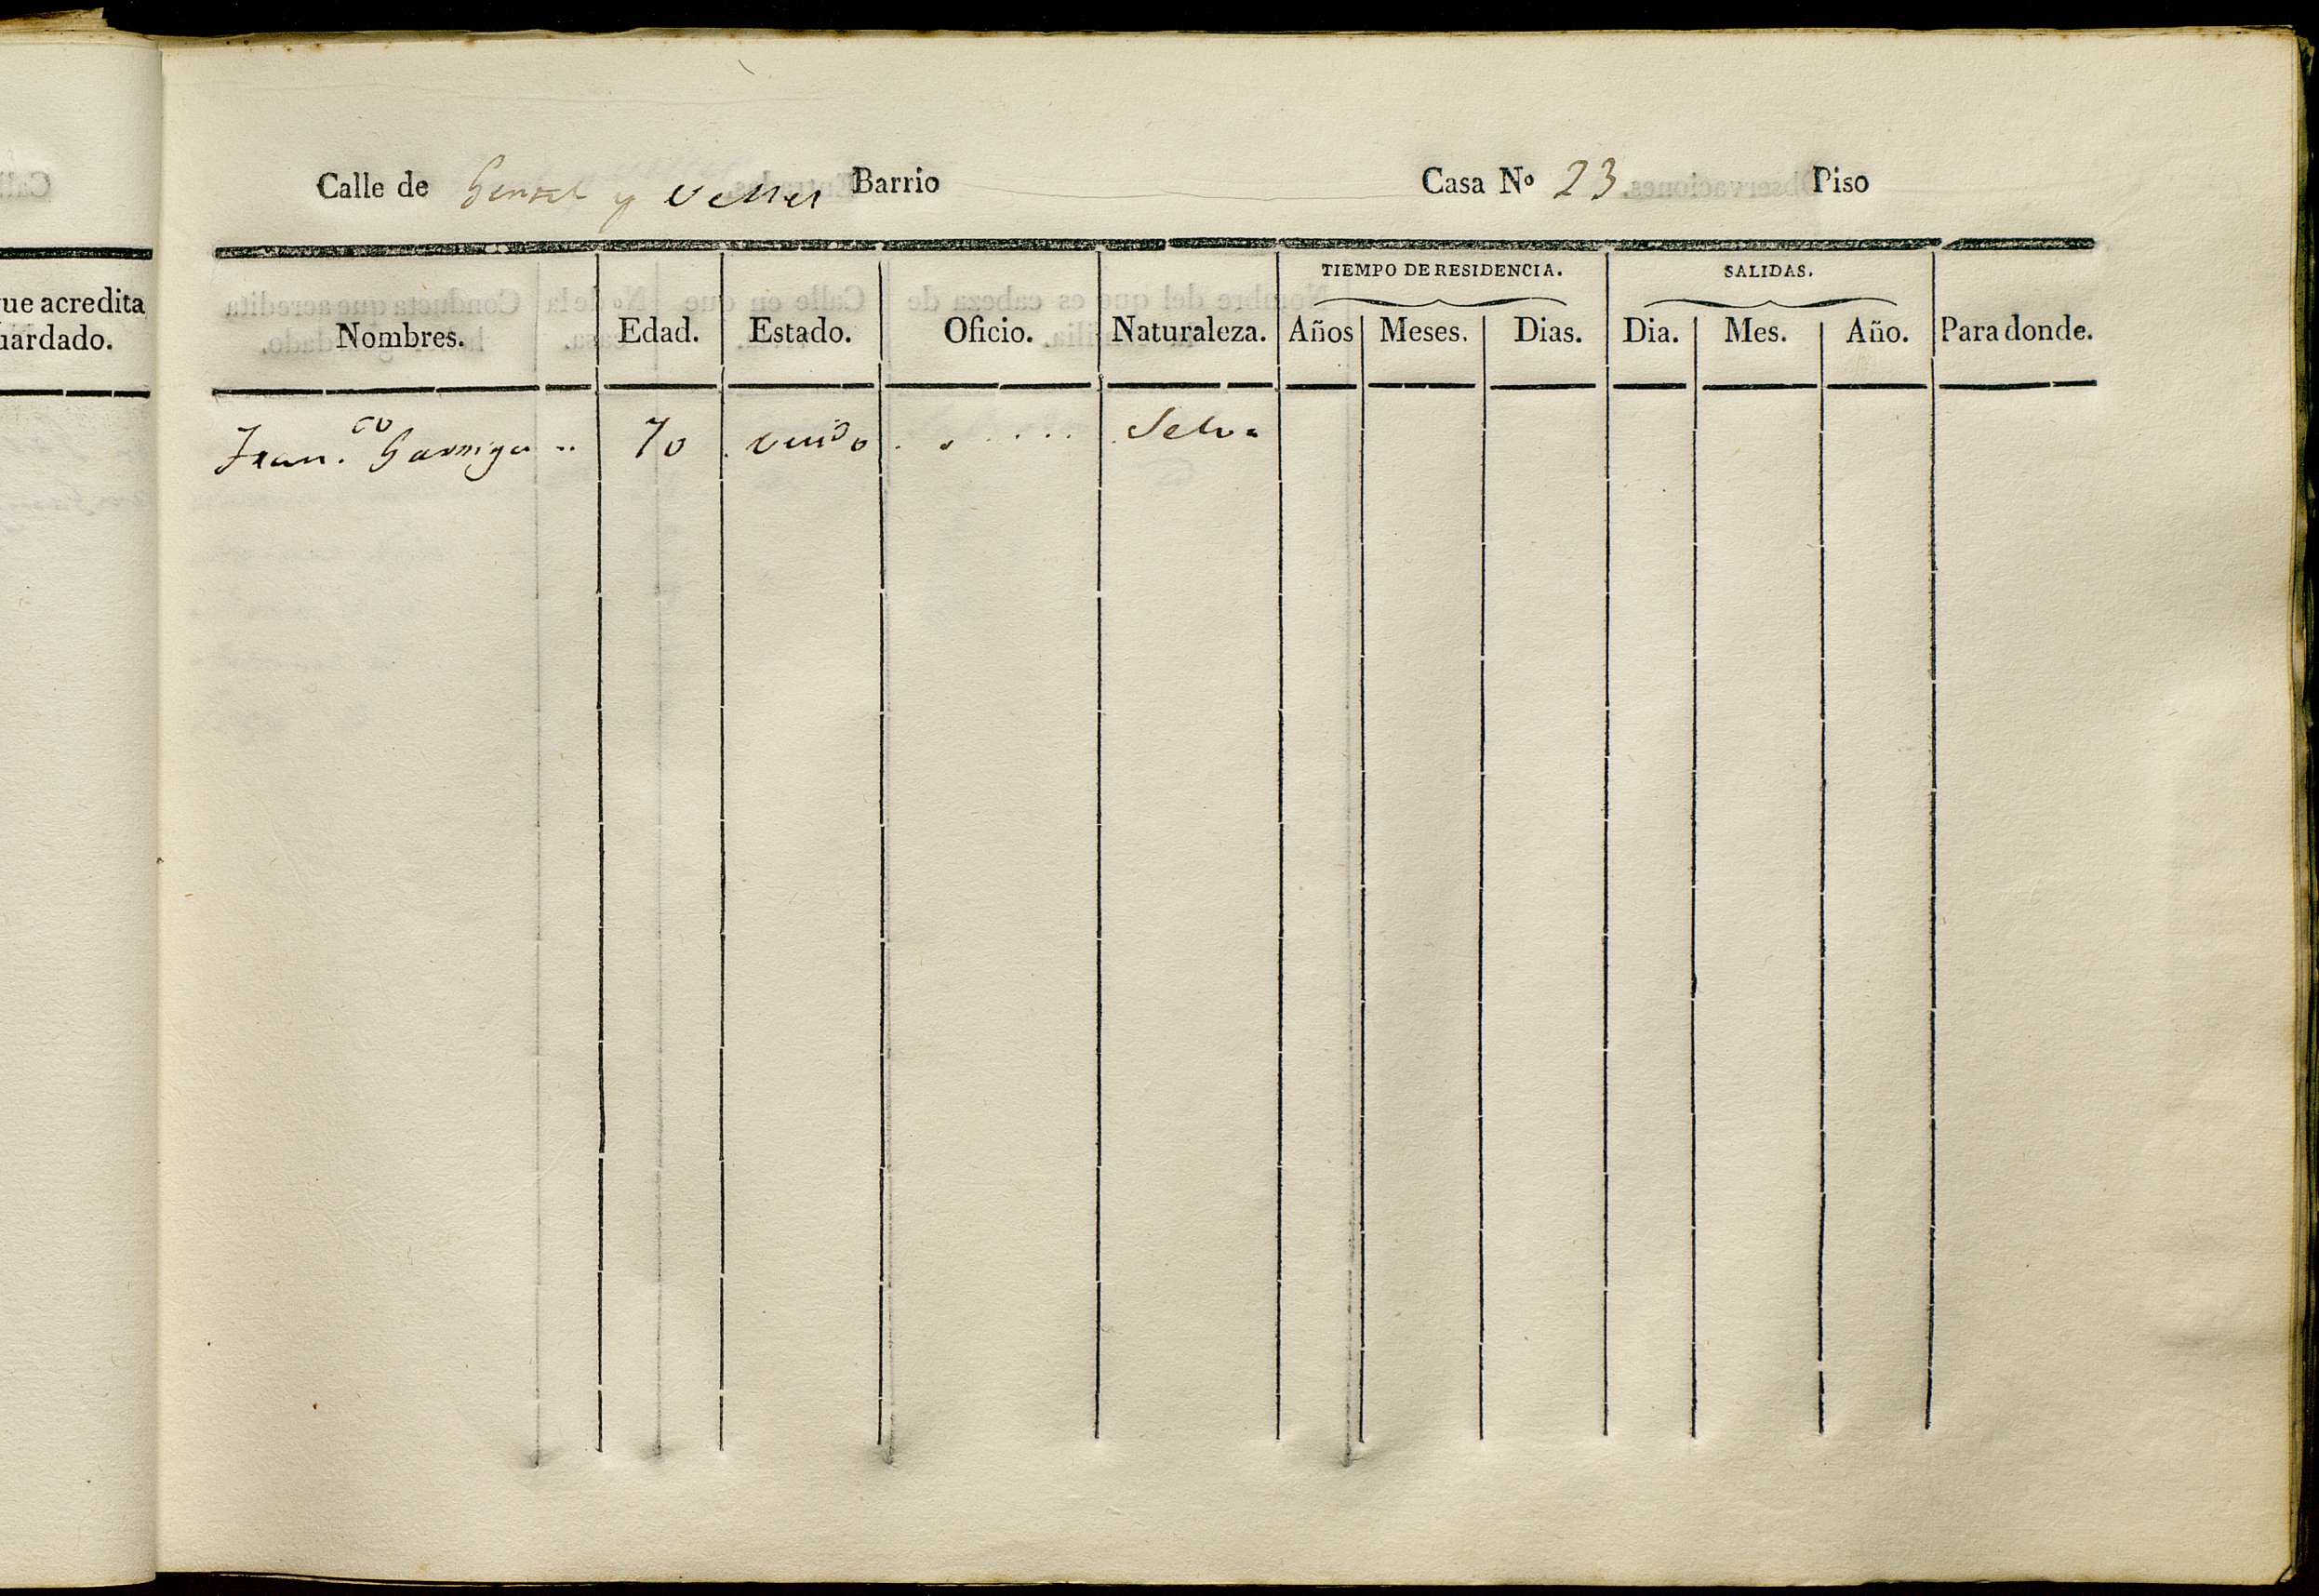 ue acredita
uardado.
Calle de y Barrio Casa Nº 23 Piso
TIEMPO DE RESIDENCIA. SALIDAS.
Nombres. Edad. Estado. Oficio. Naturaleza. Años Meses. Dias. Dia. Mes. Año. Para donde.
Fran.co Garriga .. 70 . viudo . . . . . . Selva